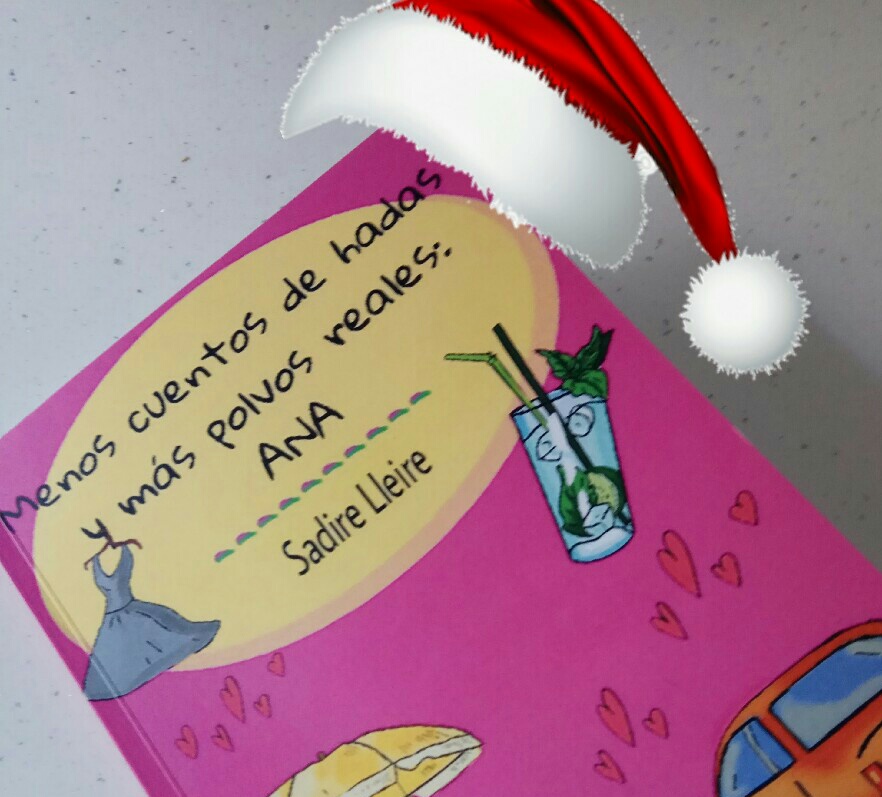 Menos cuentos de hadas
y más polvos reales:
ANA
Sadire Lleire